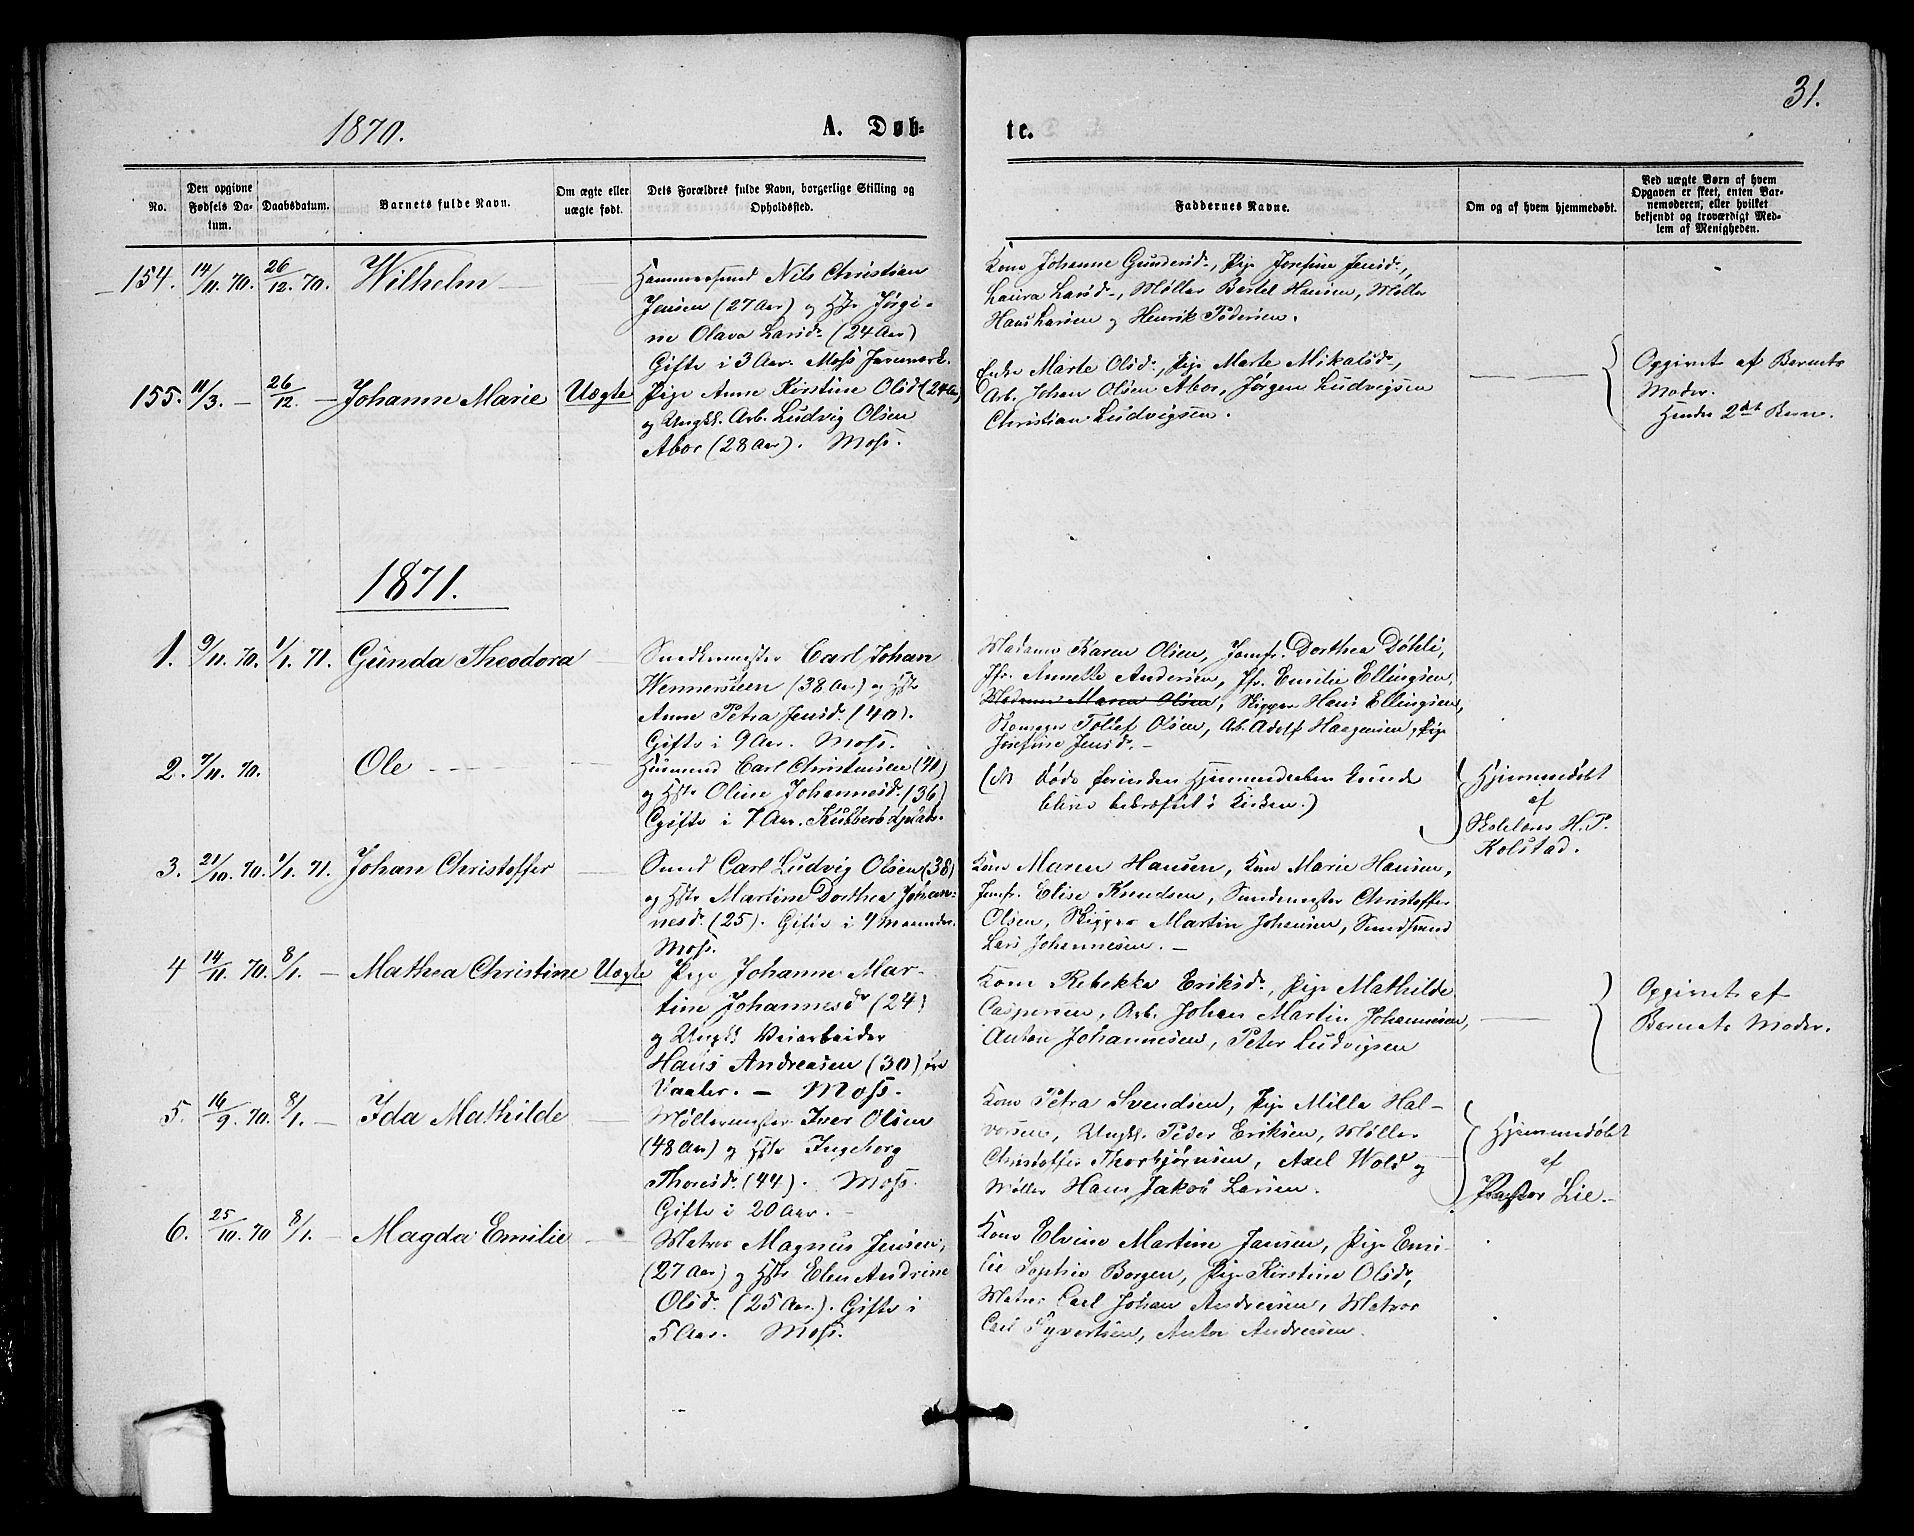 31.
1870.
A. Døb-
te.
No.
Den opgivne Fødsels Da-tum.
Daabsdatum.
Barnets fulde Navn.
Om ægte eller uægte født.
Dets Forældres fulde Navn, borgerlige Stilling og Opholdssted.
Faddernes Navne.
Om og af hvem hjemmedøbt.
Ved uægte Børn af hvem Opgaven er skeet, enten Bar-nemoderen, eller hvilket bekjendt og troværdigt Med-lem af Menigheden.
154. 14/11. 70. 26/12. 70. Wilhelm
Hammersmed Nils Christian
Jensen (27 Aar) og Hstr Jørgi-
ne Olava Larsd. (24 Aar)
Gifte i 3 Aar. Moss Jernverk.
Kone Johanne Gundersd., Pige Josefine Jensd.,
Laura Larsd., Møller Bertel Hansen, Møller
Hans Larsen og Henrik Pedersen.
155. 11/3. - 26/12. - Johanne Marie Uægte
Pige Anne Kirstine Olsd (24 Aar)
og Ungk. Arb. Ludvig Olsen
Aboe (28 Aar). Moss.
Enke Marte Olsd., Pige Marte Mikalsd.,
Arb. Johan Olsen Aboe, Jørgen Ludvigsen
Christian Ludvigsen.
Opgivet af Barnets
Moder.
Hendes 2det Barn.
1871.
1. 9/11. 70. 1/1. 71. Gunda Theodora
Snedkermester Carl Johan
Wennersteen (38 Aar) og Hstr
Anne Petra Jensd. (40).
Gifte i 9 Aar. Moss.
Madame Karen Olsen, Jomfr. Dorthea Døhli,
Jfr. Annette Andersen, Jfr. Emilie Ellingsen,
Madame Maren Olsen, Skipper Hans Ellingsen,
Tollef Olsen, Arb. Adolf Haagensen, Pige
Josefine Jensd. -
2. 7/11. 70. Ole
Husmand Carl Christensen (41)
og Hstr Oline Johannesd. (36)
Gifte i 7 Aar. Kubberødpladsen.
døde forinden Hjemmedaaben kunde
blive bekræftet i Kirken.)
Hjemmedøbt
af
Skolelærer H. P.
Kolstad.
3. 21/10. 70. 1/1. 71. Johan Christoffer
Smed Carl Ludvig Olsen (38)
og Hstr Martine Dorthea Johan-
nesd. (25). Gifte i 4 Maaneder.
Moss.
Kone Maren Hansen, Kone Marie Hansen,
Jomfr. Elise Knudsen, Smedemester Christoffer
Olsen, Skipper Martin Johansen, Smedsvend
Lars Johannesen. -
4 14/11. 70. 8/1. - Mathea Christine Uægte
Pige Johanne Mar-
tine Johannesd (24)
og Ungk. Veiarbeider
Hans Andreasen (30) fra
Vaaler. - Moss.
Kone Rebekka Eriksd., Pige Mathilde
Caspersen, Arb. Johan Martin Johannesen,
Anton Johannesen, Peter Ludvigsen
Opgivet af
Barnets Moder.
5. 16/9. 70. 8/1. - Ida Mathilde
Møllermester Iver Olsen
(48 Aar) og Hstr Ingeborg
Thoresd. (44). Moss.
Gifte i 20 Aar. -
Kone Petra Svendsen, Pige Mille Hal-
vorsen, Ungk. Peder Eriksen, Møller
Christoffer Thorbjørnsen, Axel Wold og
Møller Hans Jakob Larsen.
Hjemmedøbt
af
Pastor Lie. -
6. 25/10. 70 8/1. - Magda Emilie
Matros Magnus Jensen,
(27 Aar) og Hstr Elen Andrine
Olsd. (25 Aar). Gifte i
5 Aar. Moss.
Kone Elvine Martine Jansen, Pige Emi-
lie Sophie Borgen, Pige Kirstine Olsd,
Matros Carl Johan Andreasen, Matros
Carl Syvertsen, Anton Andreasen.